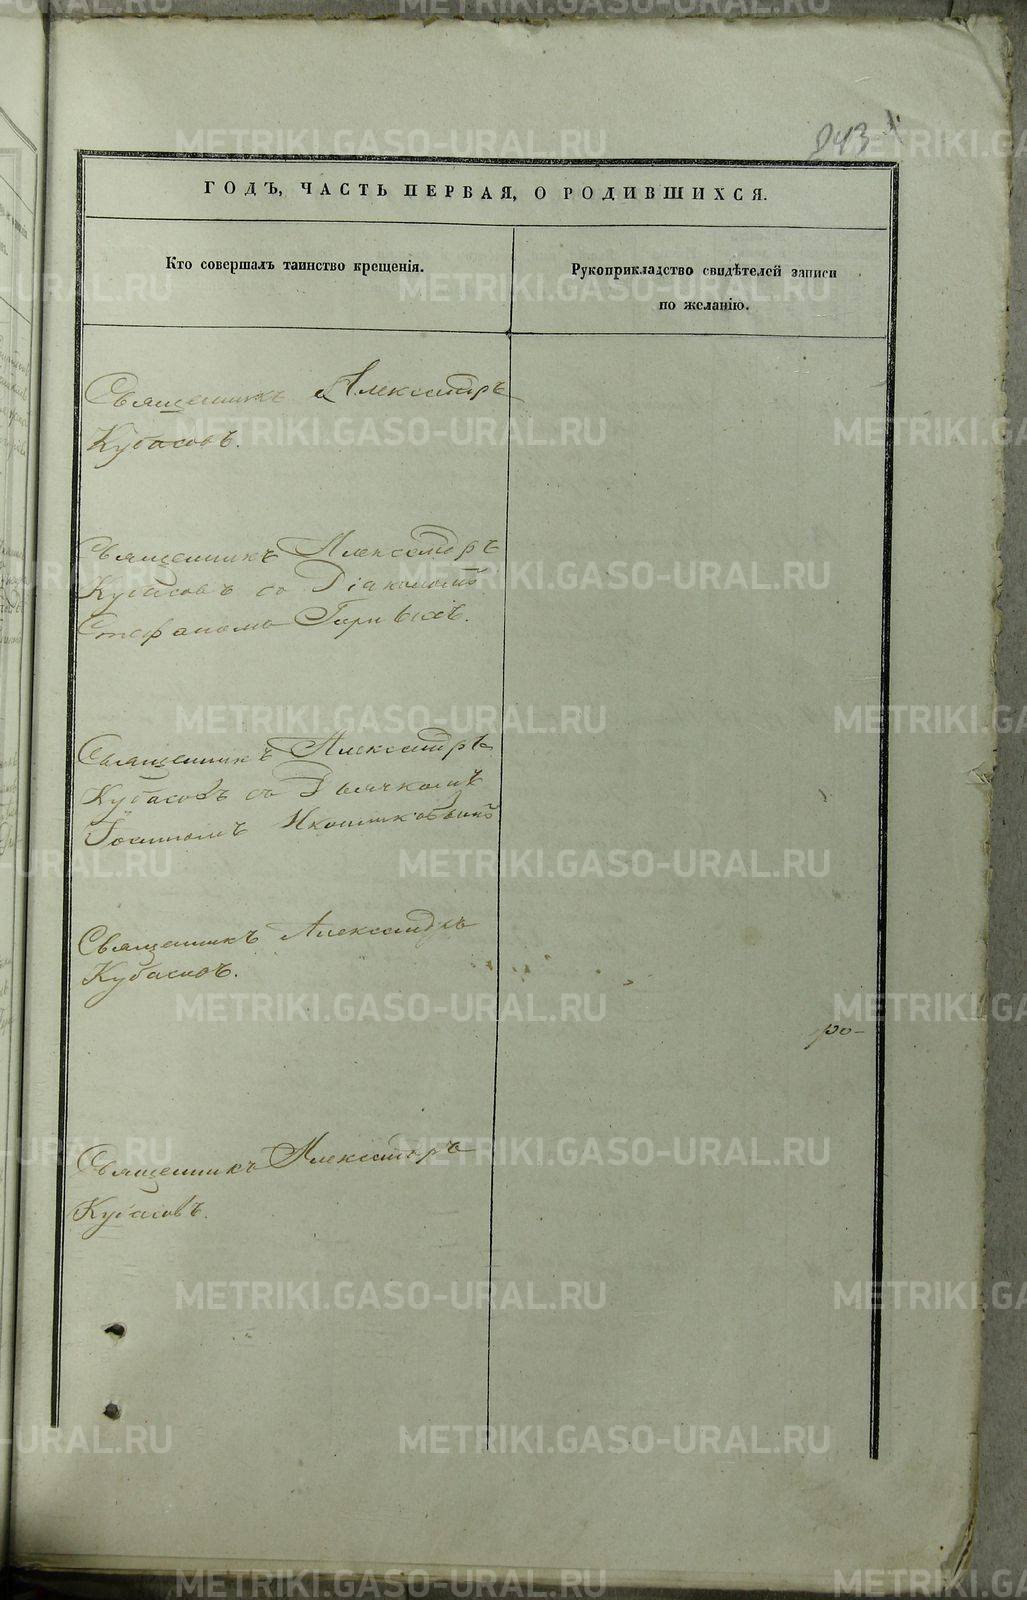 243
ГОДЪ, ЧАСТЬ ПЕРВАЯ, О РОДИВШИХСЯ.
Кто совершалъ таинство крещенія.
Рукоприкладство свидѣтелей записи
по желанію.
Священникъ Александръ
Кубасовъ.
Священникъ Александръ
Кубасовъ со Діакономъ
Стефаномъ
Священникъ Александръ
Кубасовъ съ Дьячкомъ
Іоанномъ Иконниковымъ
Священникъ Александръ
Кубасовъ.
ро-
Священникъ Александръ
Кубасовъ.
METRIKI.GASO-URAL.RU